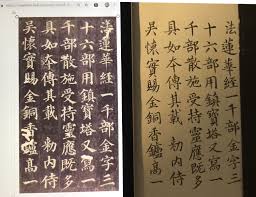 法蓮華經一千部金字三
十六部用鎮寶塔又寫一
千部散施受持靈應既多
具如本傳其載 勑內侍
吳懷實賜金銅香鑪高一
法蓮華經一千部金字三
十六部用鎮寶塔又寫一
千部散施受持靈應既多
具如本傳其載 勑內侍
吳懷實賜金銅香鑪高一